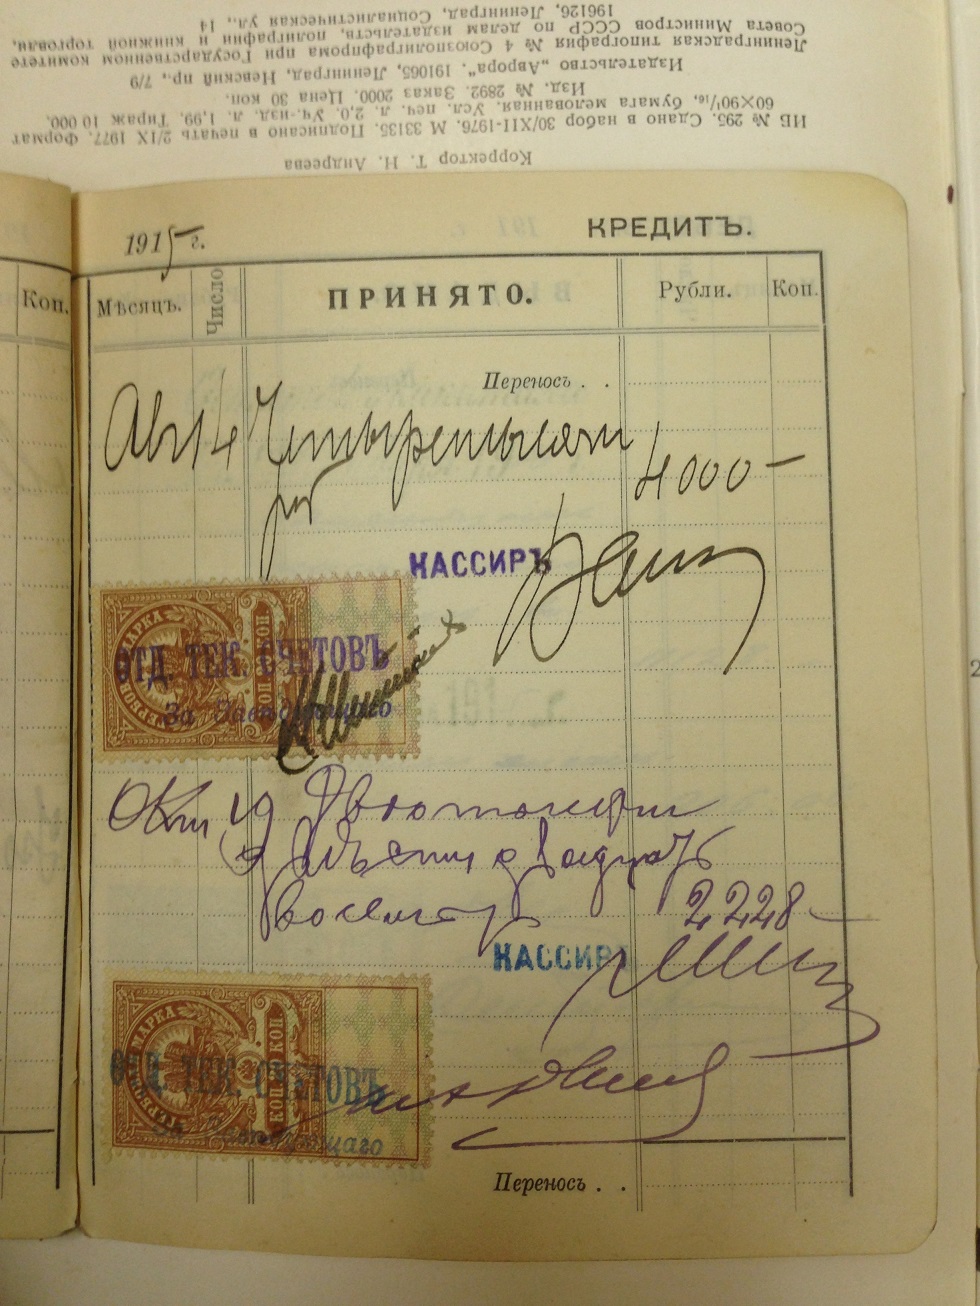 Корректор Т. Н. Андреева
ИБ № 295. Сдано в набор 30/XII-1976. М 33135. Подписано в печать 2/IX 1977. Формат
60×90¹/₁₆, бумага мелованная. Усл. печ. л. 2,0. Уч.-изд. л. 1,99. Тираж 10 000.
Изд. № 2892. Заказ 2000. Цена 30 коп.
Издательство „Аврора“. 191065, Ленинград, Невский пр., 7/9
Ленинградская типография № 4 Союзполиграфпрома при Государственном комитете
Совета Министров СССР по делам издательств, полиграфии и книжной торговли,
196126, Ленинград, Социалистическая ул., 14
1915 г. КРЕДИТЪ.
Коп.
Мѣсяцъ. Число ПРИНЯТО. Рубли. Коп.
Переносъ . .
Авг 14 Четыре тысячи 4000 —
руб
КАССИРЪ
МАРКА
КОП
ОТД. ТЕК. СЧЕТОВЪ
За Завѣдующаго
Окт 19 Двѣ тысячи
двѣсти двадцать
восемь р 2228 —
КАССИРЪ
МАРКА
КОП
ОТД. ТЕК. СЧЕТОВЪ
За Завѣдующаго
Переносъ . .